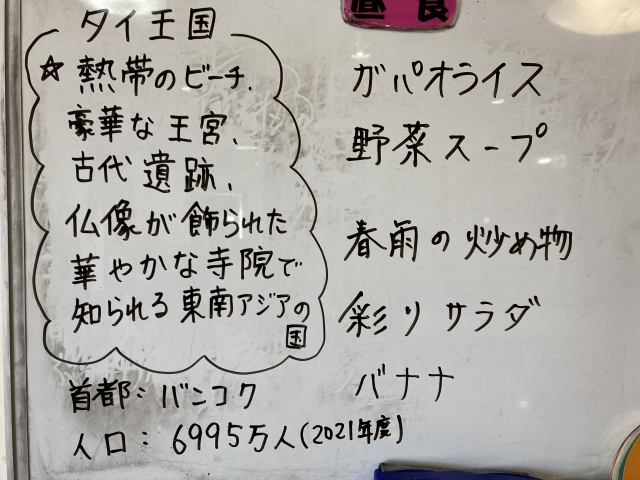 タイ王国
☆熱帯のビーチ、
豪華な王宮、
古代遺跡、
仏像が飾られた
華やかな寺院で
知られる東南アジアの
国
首都：バンコク
人口：6995万人（2021年度）
昼食
ガパオライス
野菜スープ
春雨の炒め物
彩りサラダ
バナナ